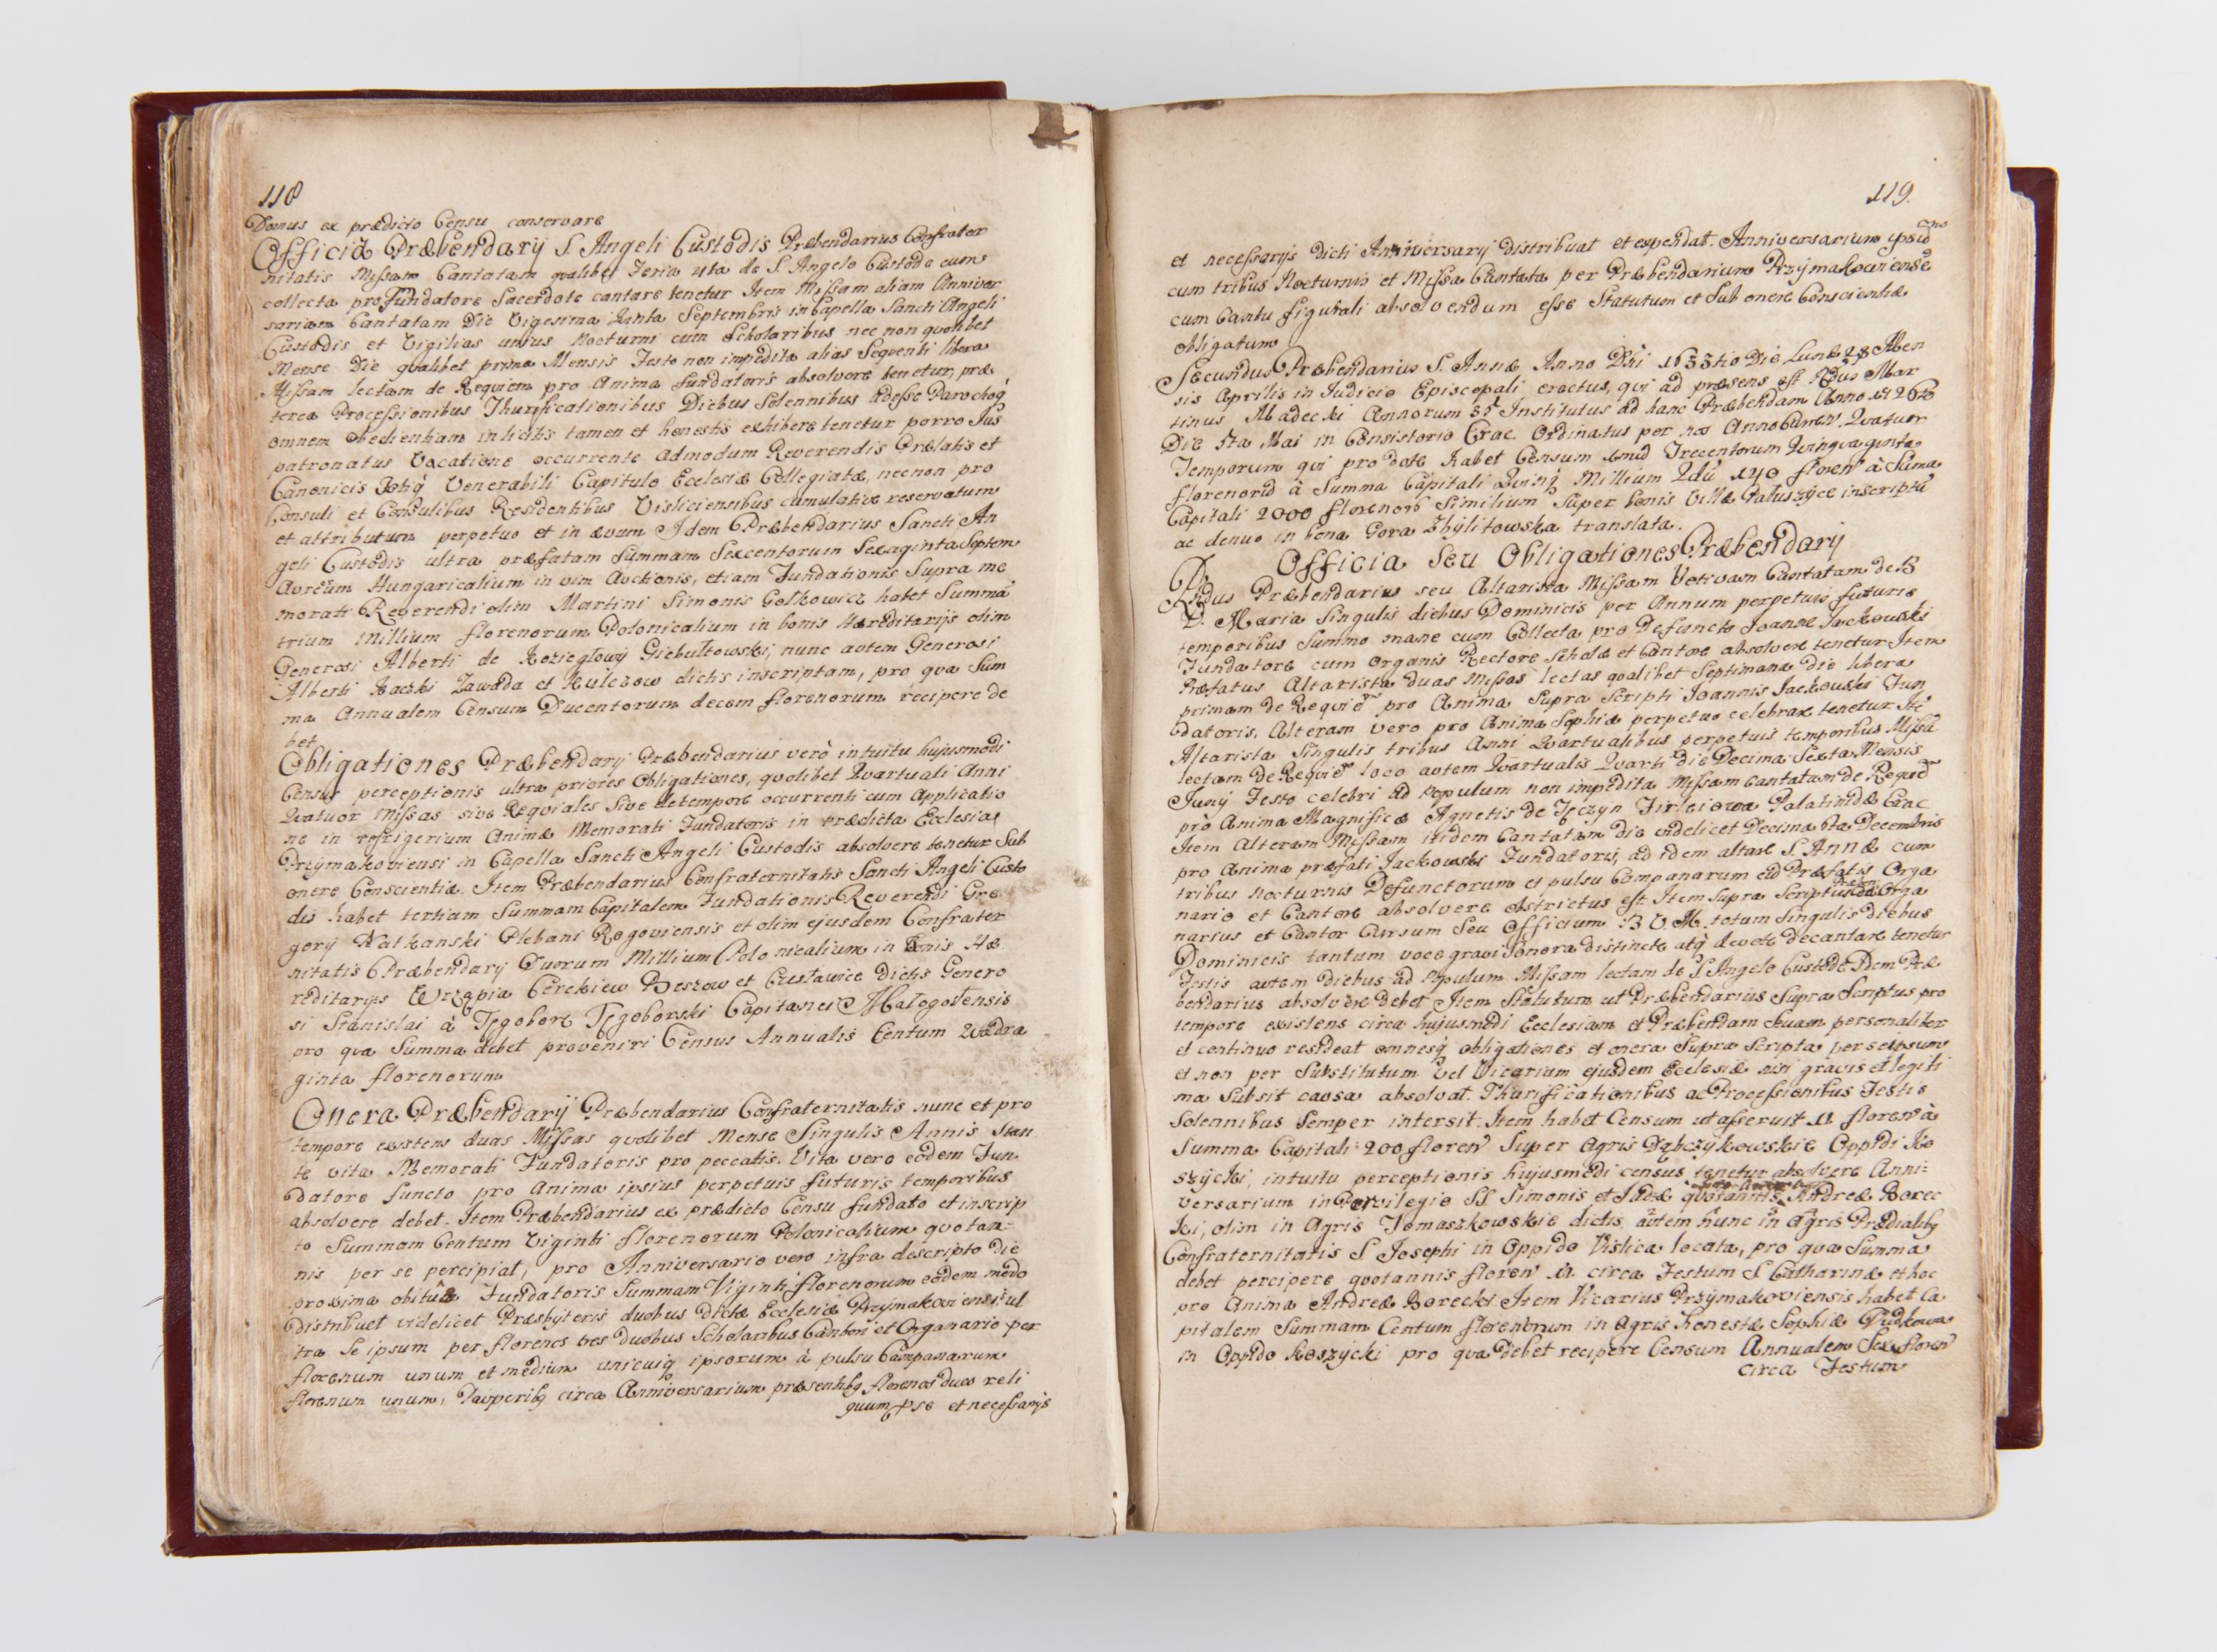 118
Domus ex prædicto Censu conservare
Officia Præbendarij S. Angeli Custodis Præbendarius Confrater
nitatis Missam Cantatam qualibet Feria 3tia de S. Angelo Custode cum
collecta pro Fundatore Sacerdote cantare tenetur Item Missam aliam Anniver
sariam Cantatam Die Vigesima Quinta Septembris in Capella Sancti Angeli
Custodis et Vigilias unius Nocturni cum Scholaribus nec non quolibet
Mense Die qualibet prima Mensis Festo non impedita alias Sequenti libera
Missam lectam de Requiem pro Anima fundatoris absolvere tenetur, præ
terea Processionibus Thurificationibus Diebus Solennibus Adesse Parochoq
omnem obedientiam in licitis tamen et honestis exhibere tenetur porro Jus
patronatus Vacatione occurrente Admodum Reverendis Prælatis et
Canonicis Totiq Venerabili Capitulo Ecclesiæ Collegiatæ, necnon pro
Consuli et Consulibus Residentibus Visliciensibus cumulative reservatum
et attributum perpetuo et in ævum Idem Præbendarius Sancti An
geli Custodis ultra præfatam Summam Sexcentorum Sexaginta Septem
Avreum Hungaricalium in vim Auctionis, etiam Fundationis Supra me
morati Reverendi olim Martini Simonis Golkowicz habet Summa
trium Millium florenorum Polonicalium in bonis Hæreditarijs olim
Generosi Alberti de Koziegłowy Giebułtowski, nunc autem Generosi
Alberti Kaczki Zawada et Kulczow dictis inscriptam, pro qua Sum
ma Annualem Censum Ducentorum decem florenorum recipere de
bet
Obligationes Præbendarij Præbendarius verò intuitu hujusmodi
Census perceptionis ultra priores Obligationes, quolibet Quartuali Anni
Quatuor Missas sive Requiales Sive de tempore occurrenti cum Applicatio
ne in refrigerium Animæ Memorati Fundatoris in prædicta Ecclesia
Przymakoviensi in Capella Sancti Angeli Custodis absolvere tenetur Sub
onere Conscientiæ. Item Præbendarius Confraternitatis Sancti Angeli Custo
dis habet tertiam Summam Capitalem Fundationis Reverendi Gre
gorij Natkanski Plebani Rogoviensis et olim ejusdem Confrater
nitatis Præbendarij Duorum Millium Polonicalium in Bonis Hæ
reditarijs Wrzępia Cerekiew Beszow et Gustawice Dictis Genero
si Stanislai à Tęgobore Tęgoborski Capitanei Małogostensis
pro qua Summa debet proveniri Census Annualis Centum Quadra
ginta florenorum
Onera Præbendarij Præbendarius Confraternitatis nunc et pro
tempore existens duas Missas quolibet Mense Singulis Annis stan
te vita Memorati Fundatoris pro peccatis. Vita vero eodem Fun
datore functo pro Anima ipsius perpetuis futuris temporibus
absolvere debet. Item Præbendarius ex prædicto Censu fundato et inscrip
to Summam Centum Viginti florenorum Polonicalium quotan:
nis per se percipiat, pro Anniversario vero infra descripto die
proxima obitûs Fundatoris Summam Viginti florenorum eodem modo
distribuet videlicet Præsbyteris duobus dictæ Ecclesiæ Przymakoviensis ul
tra Se ipsum per florenos tres duobus Scholaribus Cantori et Organario per
florenum unum et medium unicuiq ipsorum à pulsu Campanarum
florenum unum, Pauperibq circa Anniversarium præsentibq florenos duos reli
quum pse et necessarijs
119.
et necessarijs dicti Anniversarij distribuat et expendat. Anniversarium ipsud
cum tribus Nocturnis et Missa Cantata per Præbendarium Przymakoviense
cum Cantu figurali absolvendum esse Statutum et Sub onere Conscientiæ
obligatum
Secundus Præbendarius S. Annæ Anno Dni 1633tio Die Lunæ 28 Men
sis Aprilis in Judicio Episcopali erectus, qui ad præsens est Rdus Mar
tinus Madecki Annorum 35 Institutus ad hanc Præbendam Anno 1726to
Die 7ta Mai in Consistorio Crac. Ordinatus per nos Anno eodem Quatuor
Temporum qui pro dote habet Censum Trecentorum Quinquaginta
florenorū à Summa Capitali Quinq Millium 140 floren à Suma
Capitali 2000 florenorū Similium Super bonis Villæ Paluszyce inscripta
ac denuo in bona Gora Zbylitowska translata.
Officia Seu Obligationes Præbendarij
Rndus Præbendarius seu Altarista Missam Votivam Cantatam de B
V. Maria Singulis diebus Dominicis per Annum perpetuis futuris
temporibus Summo mane cum Collecta pro Defuncto Joanne Jackowski
Fundatore cum Organis Rectore Scholæ et Cantore absolvere tenetur Item
Præfatus Altarista duas Missas lectas qualibet Septimana die libera
primam de Requie pro Anima Supra Scripti Joannis Jackowski Fun
datoris, Alteram vero pro Anima Sophiæ perpetuo celebrare tenetur Ite
Altarista Singulis tribus Anni Quartualibus perpetuis temporibus Missa
lectam de Requie loco autem Quartualis Quarti die Decima Sexta Mensis
Junij Festo celebri ad Populum non impedita Missam Cantatam de Requie
pro Anima Magnificæ Agnetis de Tęczyn Firleiowa Palatinidæ Crac.
Item Alteram Missam itidem Cantatam die videlicet Decima 6ta Decembris
pro Anima præfati Jackowski Fundatoris, ad idem altare S. Annæ cum
tribus nocturnis Defunctorum et pulsu Companarum eid Præfatis Orga
nario et Cantore absolvere obstrictus est Item Supra Scriptus Orga
narius et Cantor Cursum Seu Officium B V M. totum Singulis diebus
Dominicis tantum voce gravi Sonora distincte atq devote decantare tenetur
Festis autem diebus ad Populum Missam lectam de S Angelo Custode Idem Præ
bendarius absolvere debet Item Statutum ut Præbendarius Supra Scriptus pro
tempore existens circa hujusmodi Ecclesiam et Præbendam Suam personaliter
et continuo resideat omnesq obligationes et onera Supra Scripta per seipsum
et non per Substitutum vel Vicarium ejusdem Ecclesiæ nisi gravis et legiti
ma Subsit causa absolvat. Thurificationibus ac Processionibus Festis
Solennibus Semper intersit. Item habet Censum ut asseruit 11 floren à
Summa Capitali 200 floren Super Agris Dąbczykowskie Oppidi Ko
szycki, intuitu perceptionis hujusmodi census tenetur absolvere Anni:
versarium in Pervilegio SS Simonis et Judæ quotannis Andreæ Borec
ki, olim in Agris Tomaszkowskie dictis, autem nunc in Agris Prædialibq
Confraternitatis S Josephi in Oppido Vislica locata, pro qua Summa
debet percipere quotannis floren 11. circa Festum S Catharinæ et hoc
pro Anima Andreæ Borecki Item Vicarius Przymakoviensis habet Ca
pitalem Summam Centum florenorum in Agris honestæ Sophiæ Dudkowa
in Oppido Koszycki pro qua Debet recipere Censum Annualem Sex floren
circa Festum